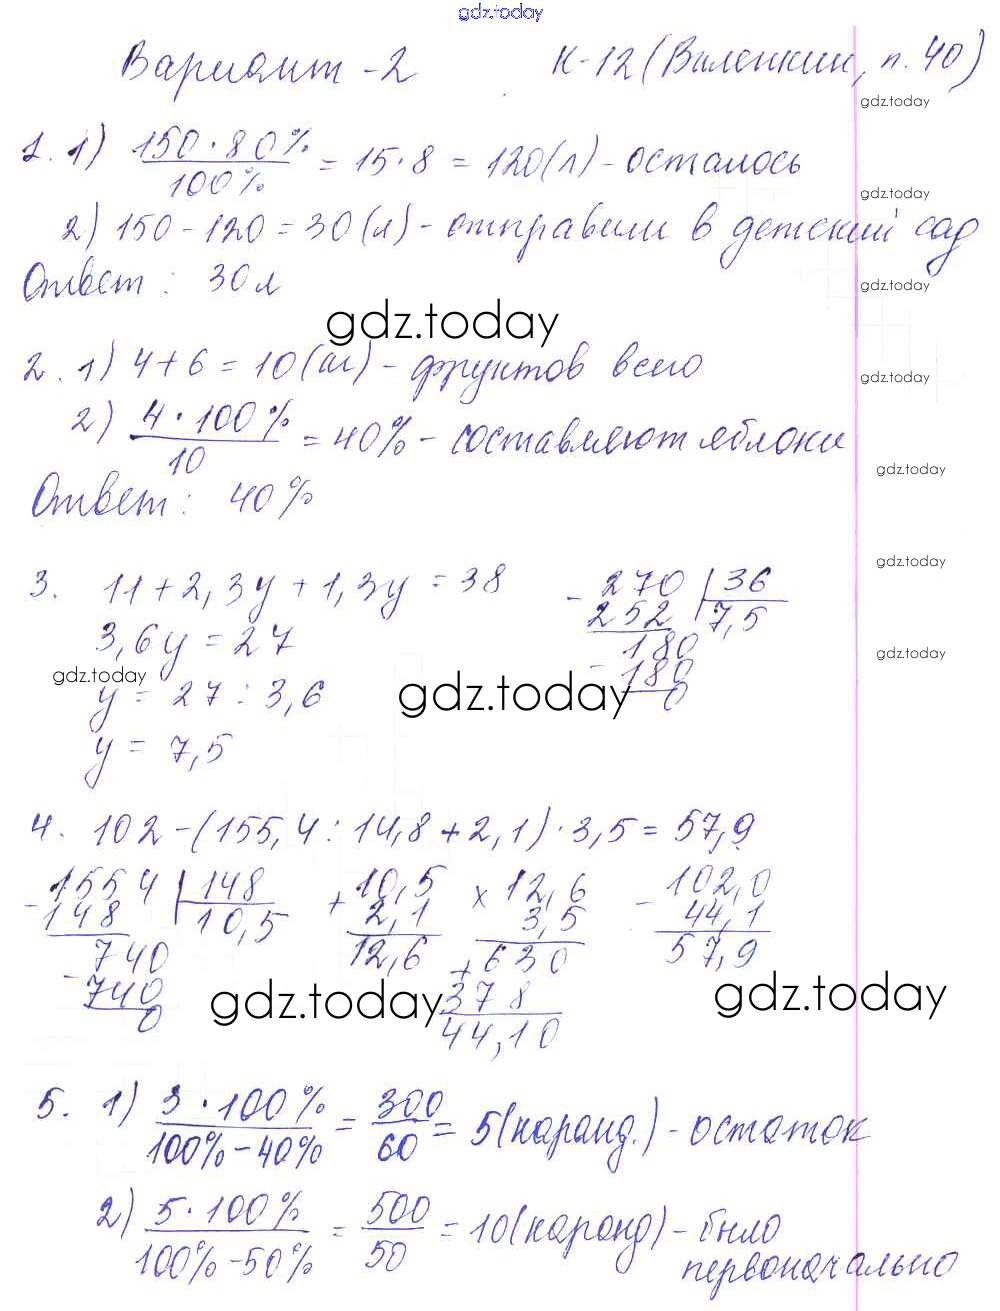 gdz.today
Вариант-2 К-12 (Виленкин, п. 40)
gdz.today
1. 1) 150·80% / 100% = 15·8 = 120(л) - осталось
gdz.today
2) 150-120=30(л) - отправили в детский сад
Ответ: 30л
gdz.today
gdz.today
2. 1) 4+6=10(кг) - фруктов всего
gdz.today
2) 4·100% / 10 = 40% - составляют яблоки
gdz.today
Ответ: 40%
gdz.today
3. 11+2,3y+1,3y=38
3,6y=27
y=27:3,6
y=7,5
-270 | 36
252 7,5
-180
180
0
gdz.today
gdz.today
gdz.today
4. 102-(155,4:14,8+2,1)·3,5=57,9
-1554 | 148
148 10,5
-740
740
0
+10,5
2,1
12,6
×12,6
3,5
+630
378
44,10
-102,0
44,1
57,9
gdz.today
gdz.today
5. 1) 3·100% / 100%-40% = 300 / 60 = 5(каранд.) - остаток
2) 5·100% / 100%-50% = 500 / 50 = 10(каранд) - было
первоначально